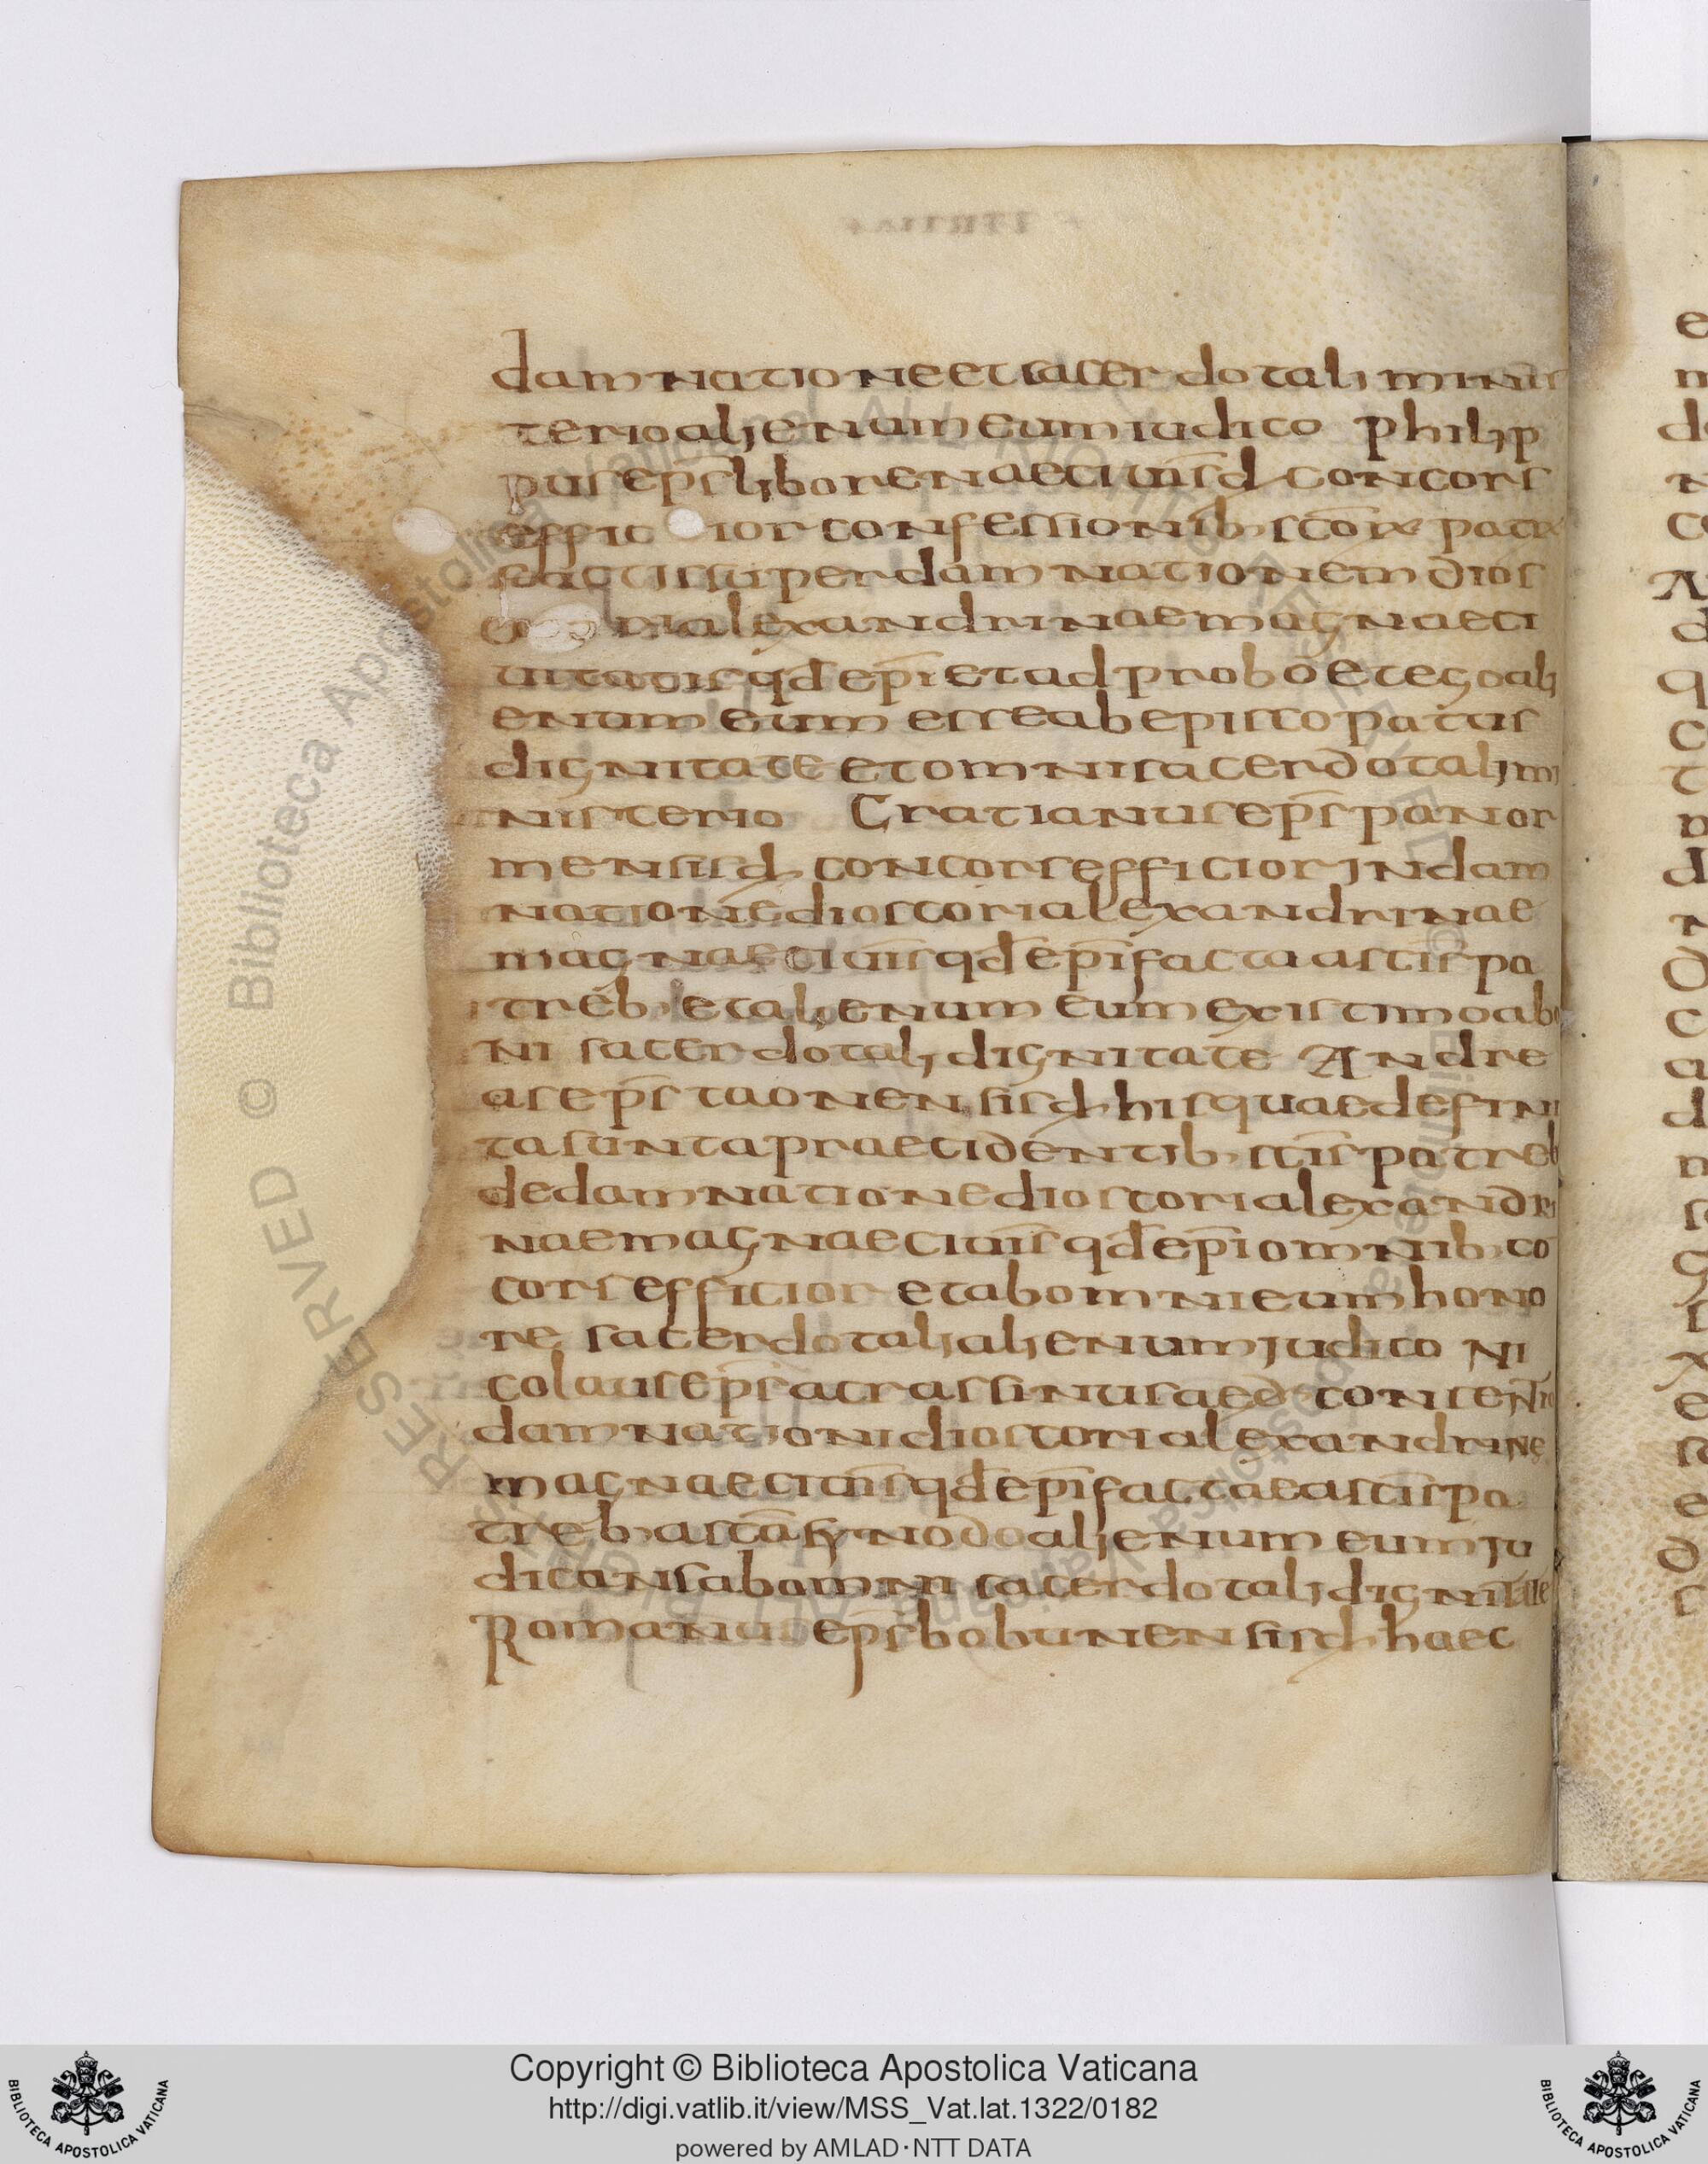 damnatione et sacerdotali minis
terio alienum eum iudico Philip
pus ep̄s liborenae ciuīs d concors
effic ior confessionib· scōr patr
factis super damnationem dios
cori alexandrinae magnae ci
uitatis qd̄ ep̄i et ad probo et ego ali
enum eum esse ab episcopatus
dignitate et omni sacerdotali mi
nisterio Gratianus ep̄s panor
mensis d concors efficior in dam
natione dioscori alexandrinae
magnae ciuīs qd̄ ep̄i facta a sc̄is pa
treb· et alienum eum existimo ab o
ni sacerdotali dignitate Andre
as ep̄s taonensis d his quae defini
ta sunt a praecidentib· sc̄is patreb
de damnatione dioscori alexandri
nae magnae ciuīs qd̄ ep̄i omnib· cō
cors efficior et ab omni eum hono
re sacerdotali alienum iudico Ni
colaus ep̄s acrassinus aed consentio
damnationi dioscori alexandrine
magnae ciuīs qd̄ ep̄i factae a sc̄is pa
treb· a sc̄a synodo alienum eum iu
dicans ab omni sacerdotali dignitate
Romanus ep̄s bobunensis d haec
Copyright © Biblioteca Apostolica Vaticana
http://digi.vatlib.it/view/MSS_Vat.lat.1322/0182
powered by AMLAD·NTT DATA